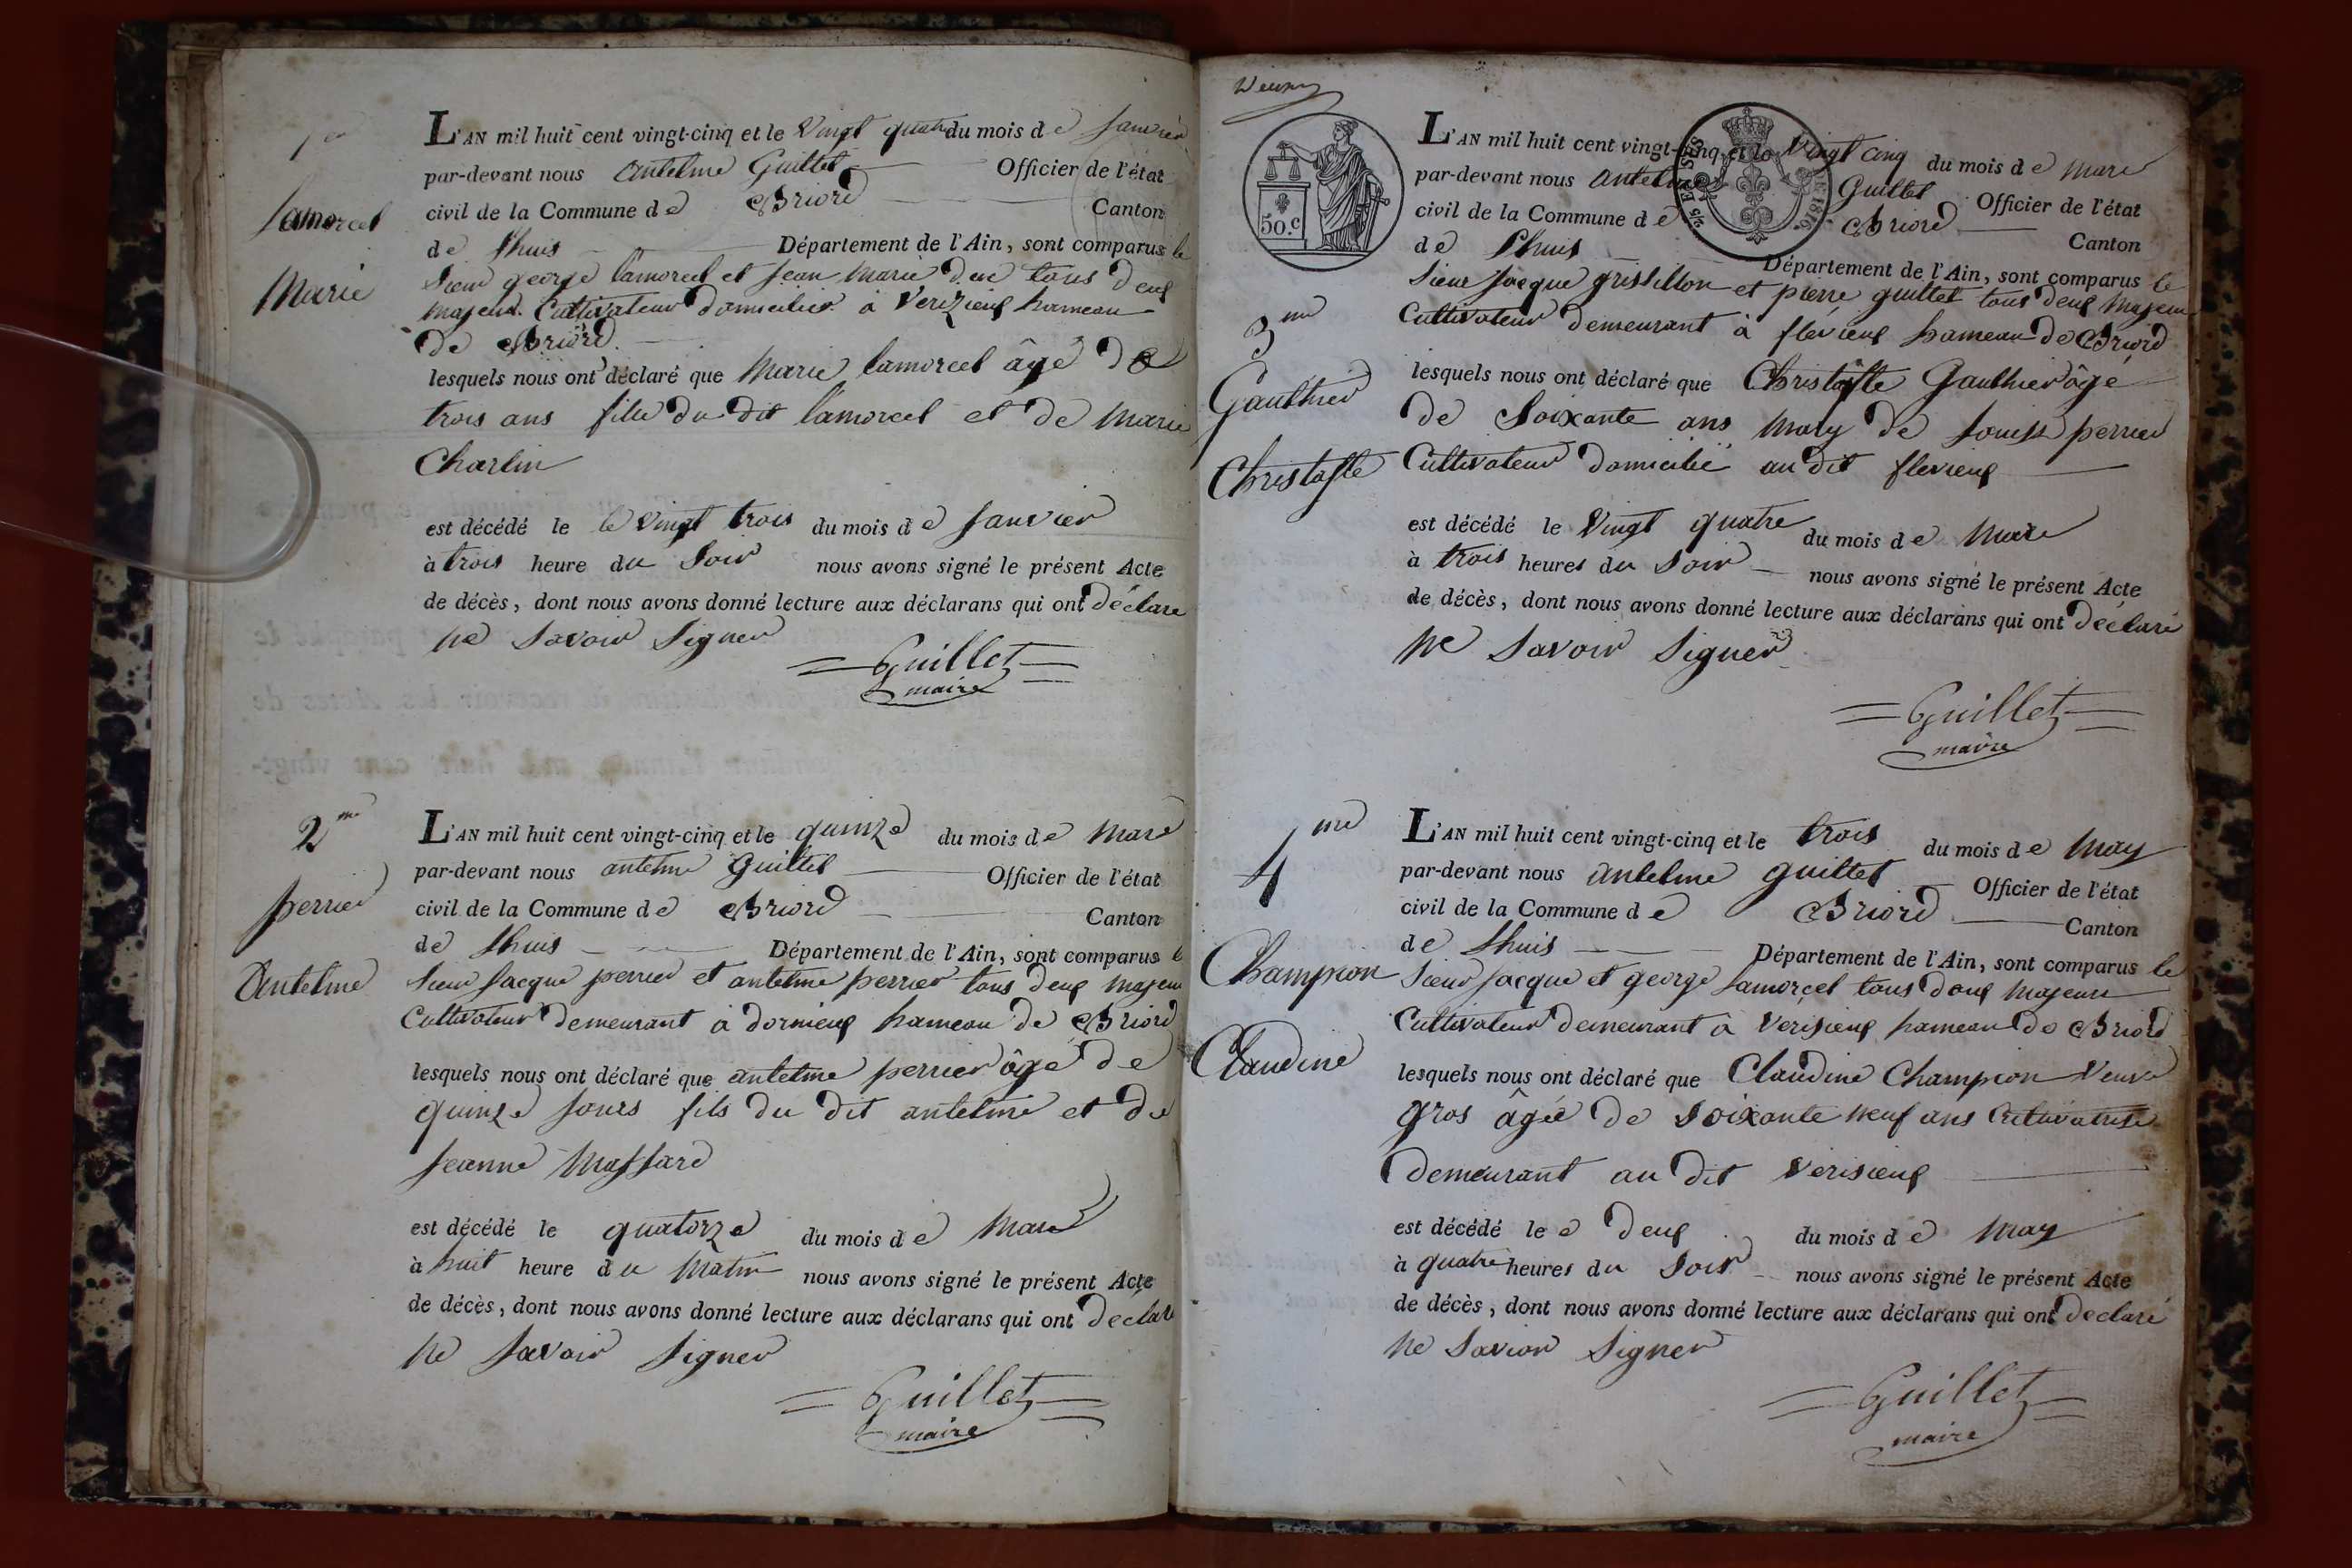 1er
Lamorcel
Marie
L'AN mil huit cent vingt-cinq et le Vingt quatre du mois de Janvier
par-devant nous antelme Guillet Officier de l'état
civil de la Commune de Briord Canton
de Lhuis Département de l'Ain, sont comparus le
Sieur george lamorcel et Jean Marie duc tous deux
majeur Cultivateur domicilié à Verizieux hameau
de Briord
lesquels nous ont déclaré que Marie lamorcel âgé de
trois ans fille du dit lamorcel et de Marie
Charlin
est décédé le le Vingt trois du mois de Janvier
à trois heure du Soir nous avons signé le présent Acte
de décès, dont nous avons donné lecture aux déclarans qui ont déclaré
ne Savoir Signer
Guillet
maire
2me
perrier
Antelme
L'AN mil huit cent vingt-cinq et le quinze du mois de Mars
par-devant nous antelme Guillet Officier de l'état
civil de la Commune de Briord Canton
de Lhuis Département de l'Ain, sont comparus le
Sieur Jacque perrier et antelme perrier tous deux Majeur
Cultivateur demeurant à dornieux hameau de Briord
lesquels nous ont déclaré que antelme perrier âgé de
quinze Jours fils du dit antelme et de
Jeanne Massard
est décédé le quatorze du mois de Mars
à huit heure du Matin nous avons signé le présent Acte
de décès, dont nous avons donné lecture aux déclarans qui ont declaré
ne Savoir Signer
Guillet
maire
50.c
3me
Gauthier
Christofle
L'AN mil huit cent vingt-cinq et le Vingt cinq du mois de Mars
par-devant nous Antelme Guillet Officier de l'état
civil de la Commune de Briord Canton
de Lhuis Département de l'Ain, sont comparus le
Sieur Jacque grisillon et pierre guillet tous deux Majeur
Cultivateur demeurant à flévieux hameau de Briord
lesquels nous ont déclaré que Christofle Gauthier âgé
de Soixante ans Mary de Louise perrier
Cultivateur domicilié au dit flevieux
est décédé le Vingt quatre du mois de Mars
à trois heures du Soir nous avons signé le présent Acte
de décès, dont nous avons donné lecture aux déclarans qui ont déclaré
ne Savoir Signer
Guillet
maire
4me
Champion
Claudine
L'AN mil huit cent vingt-cinq et le trois du mois de May
par-devant nous antelme guillet Officier de l'état
civil de la Commune de Briord Canton
de Lhuis Département de l'Ain, sont comparus le
Sieur Jacque et george Lamorcel tous deux Majeur
Cultivateur demeurant à Verisieux hameau de Briord
lesquels nous ont déclaré que Claudine Champion Veuve
gros âgée de Soixante neuf ans Cultivatrise
demeurant au dit Verisieux
est décédé le e deux du mois de May
à quatre heures du Soir nous avons signé le présent Acte
de décès, dont nous avons donné lecture aux déclarans qui ont declaré
ne Savior Signer
Guillet
maire